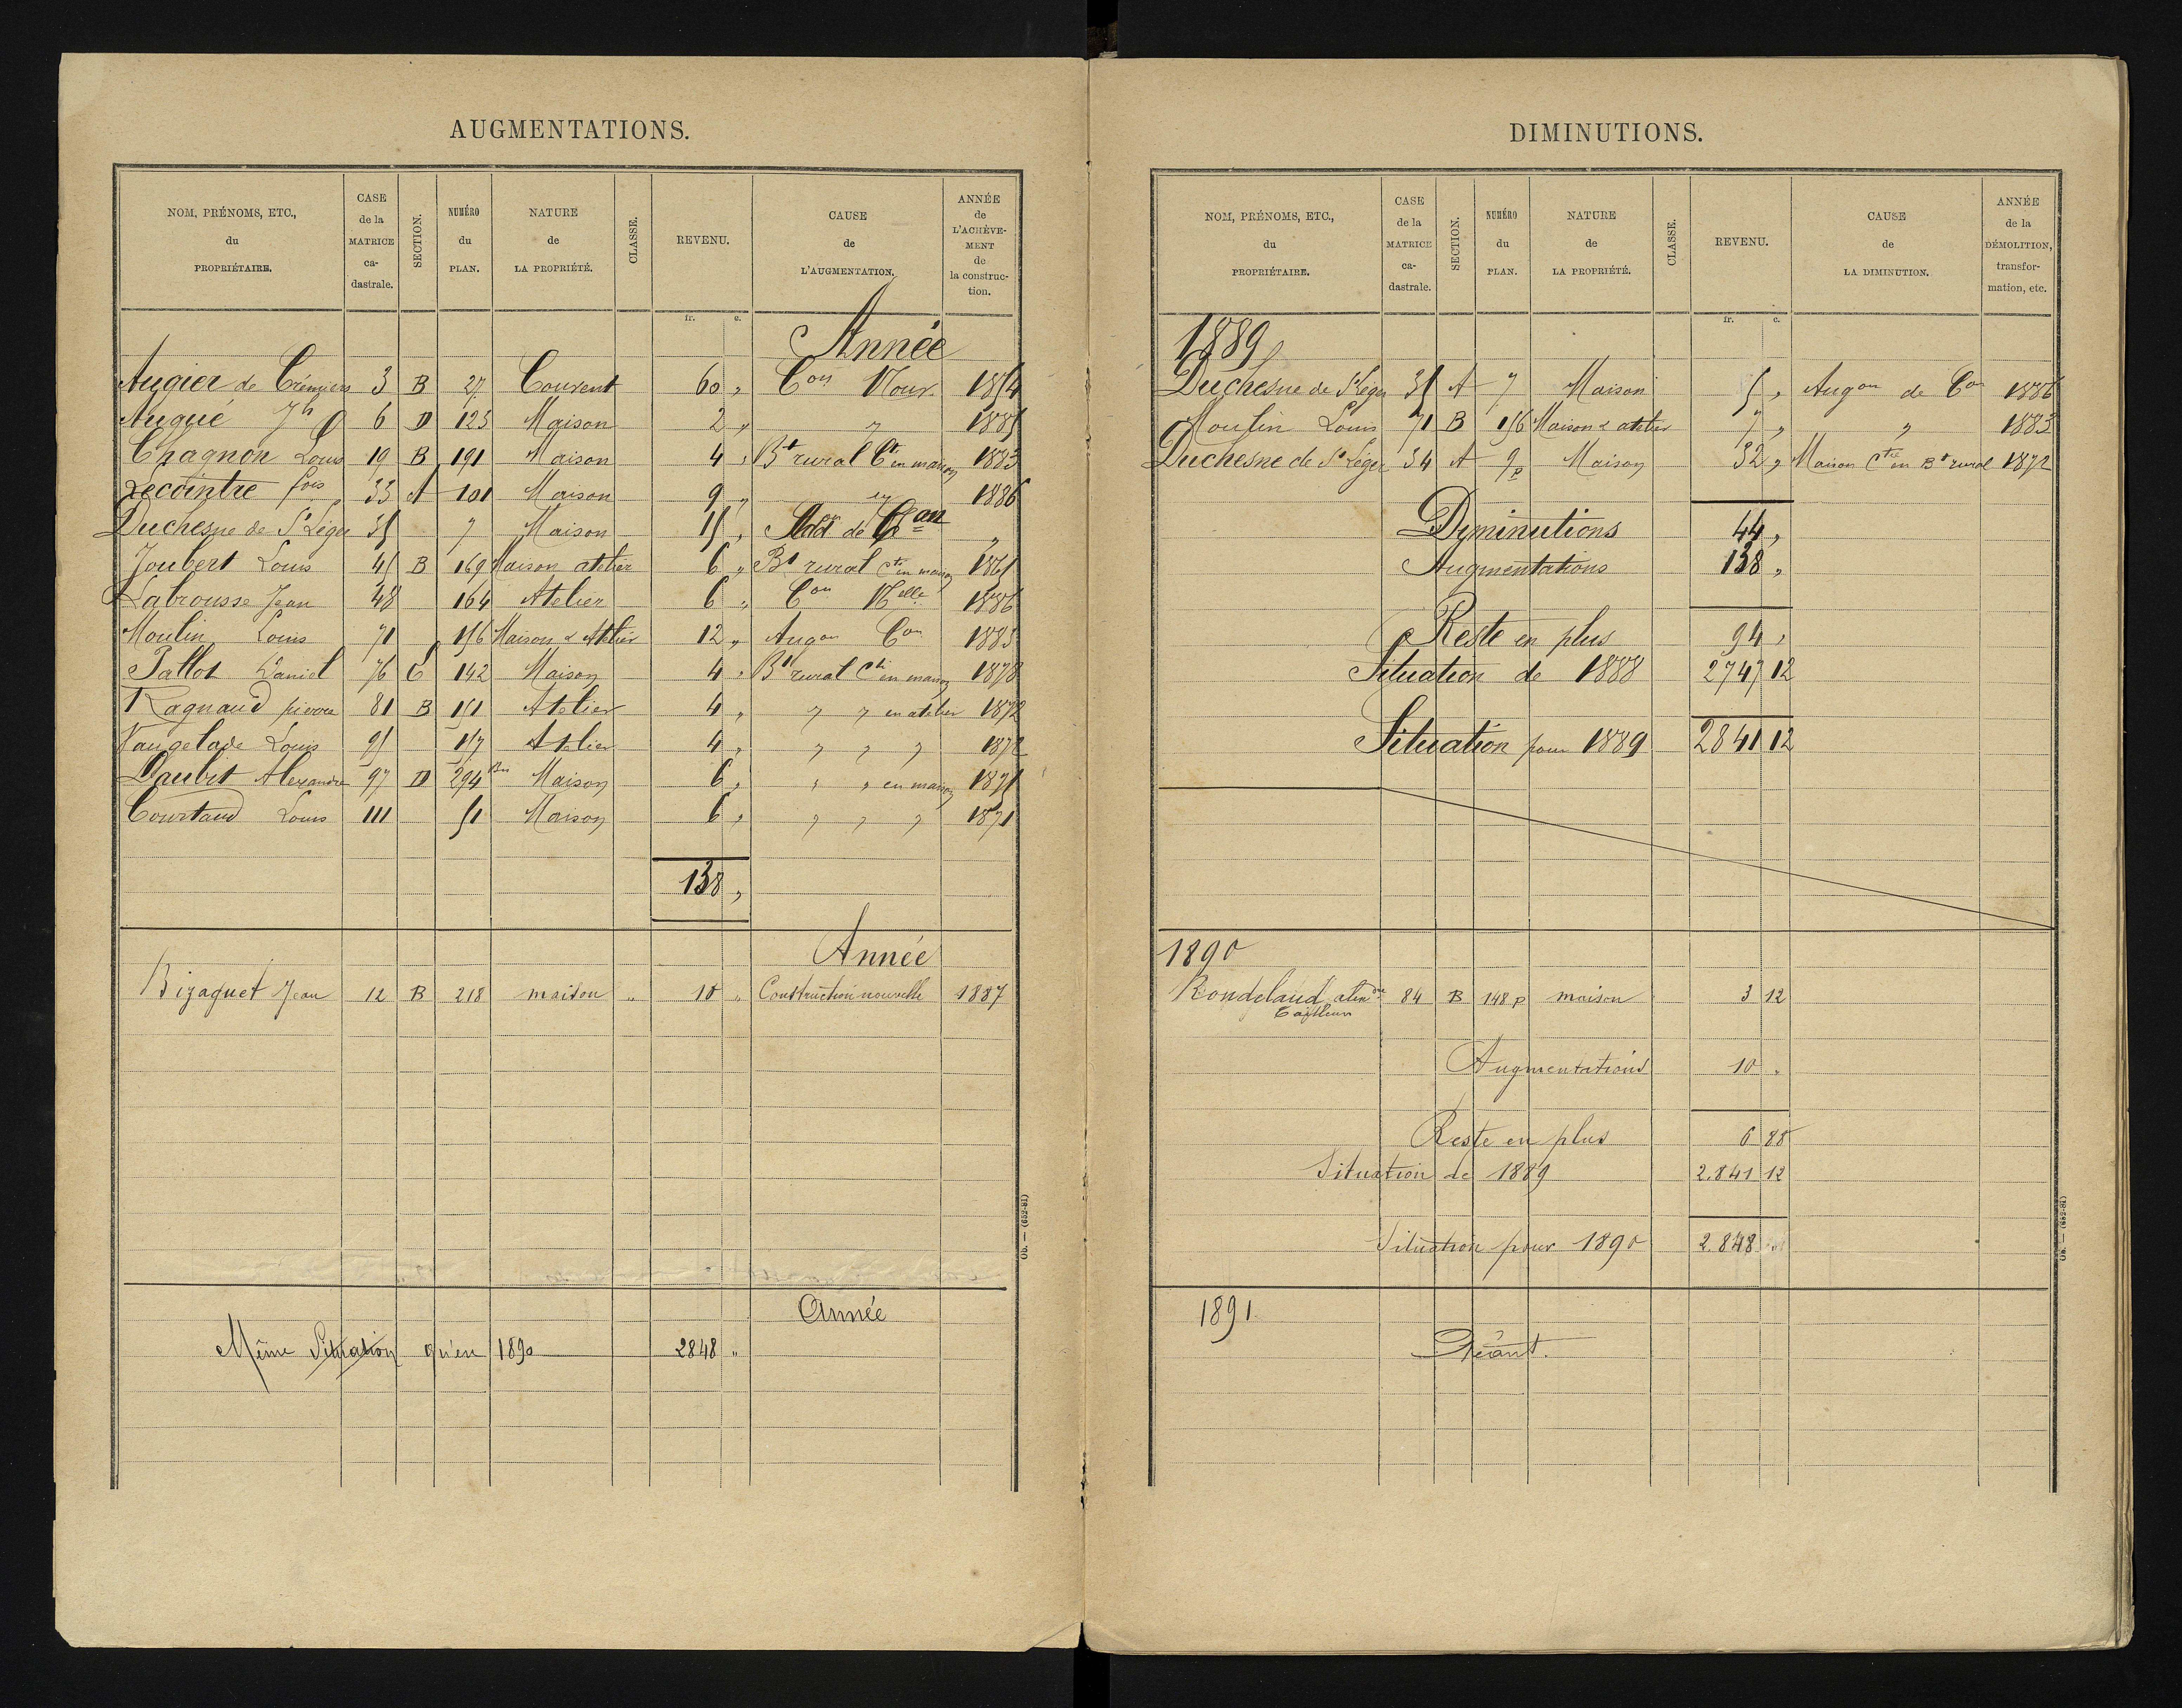 AUGMENTATIONS.
NOM, PRÉNOMS, ETC., du PROPRIÉTAIRE. CASE de la MATRICE ca-dastrale. SECTION. NUMÉRO du PLAN. NATURE de LA PROPRIÉTÉ. CLASSE. REVENU. CAUSE de L'AUGMENTATION. ANNÉE de L'ACHÈVE-MENT de la construc-tion.
fr. c.
Année
Augier de Crémiers 3 B 27 Couvent 60 " Con Nour 1854
Augué Jh 6 D 123 Maison 2 " " 1885
Chagnon Louis 19 B 191 Maison 4 " Bt rural Ct en maison 1883
Lecointre fois 33 A 101 Maison 9 " " 1886
Duchesne de St Léger 35 7 Maison 15 " de Con "
Joubert Louis 45 B 169 Maison atelier 6 " Bt rural Cti en maison 1865
Labrousse Jean 48 164 Atelier 6 " Con Nelle 1886
Moulin Louis 71 156 Maison & Atelier 12 " Augon Con 1883
Pallot Daniel 76 C 142 Maison 4 " Bt rural Cti en maison 1878
Ragnaud pierre 81 B 151 Atelier 4 " " " en atelier 1872
Vaugelade Louis 95 157 Atelier 4 " " " " 1872
Daubit Alexandre 97 D 294 Bis Maison 6 " " " en maison 1871
Courtaud Louis 111 51 Maison 6 " " " " 1871
138 "
Année
Bizaguet Jean 12 B 218 maison " 10 " Construction nouvelle 1887
Année
Même Situation qu'en 1890 2848 "
Ob. — (652-81)
DIMINUTIONS.
NOM, PRÉNOMS, ETC., du PROPRIÉTAIRE. CASE de la MATRICE ca-dastrale. SECTION. NUMÉRO du PLAN. NATURE de LA PROPRIÉTÉ. CLASSE. REVENU. CAUSE de LA DIMINUTION. ANNÉE de la DÉMOLITION, transfor-mation, etc.
fr. c.
1889
Duchesne de St Léger 35 A 7 Maison 5 " Augon de Con 1886
Moulin Louis 71 B 156 Maison & atelier 7 " " 1883
Duchesne de St Léger 34 A 9p Maison 32 " Maison Ctie en Bt rural 1872
Diminutions 44 "
Augmentations 138 "
Reste en plus 94 "
Situation de 1888 2747 12
Situation pour 1889 2841 12
1890
Rondelaud alexdre 84 B 148 p maison 3 12
Augmentations 10 "
Reste en plus 6 88
Situation de 1889 2.841 12
Situation pour 1890 2.848 "
1891.
Néant.
Ob. — (652-81)